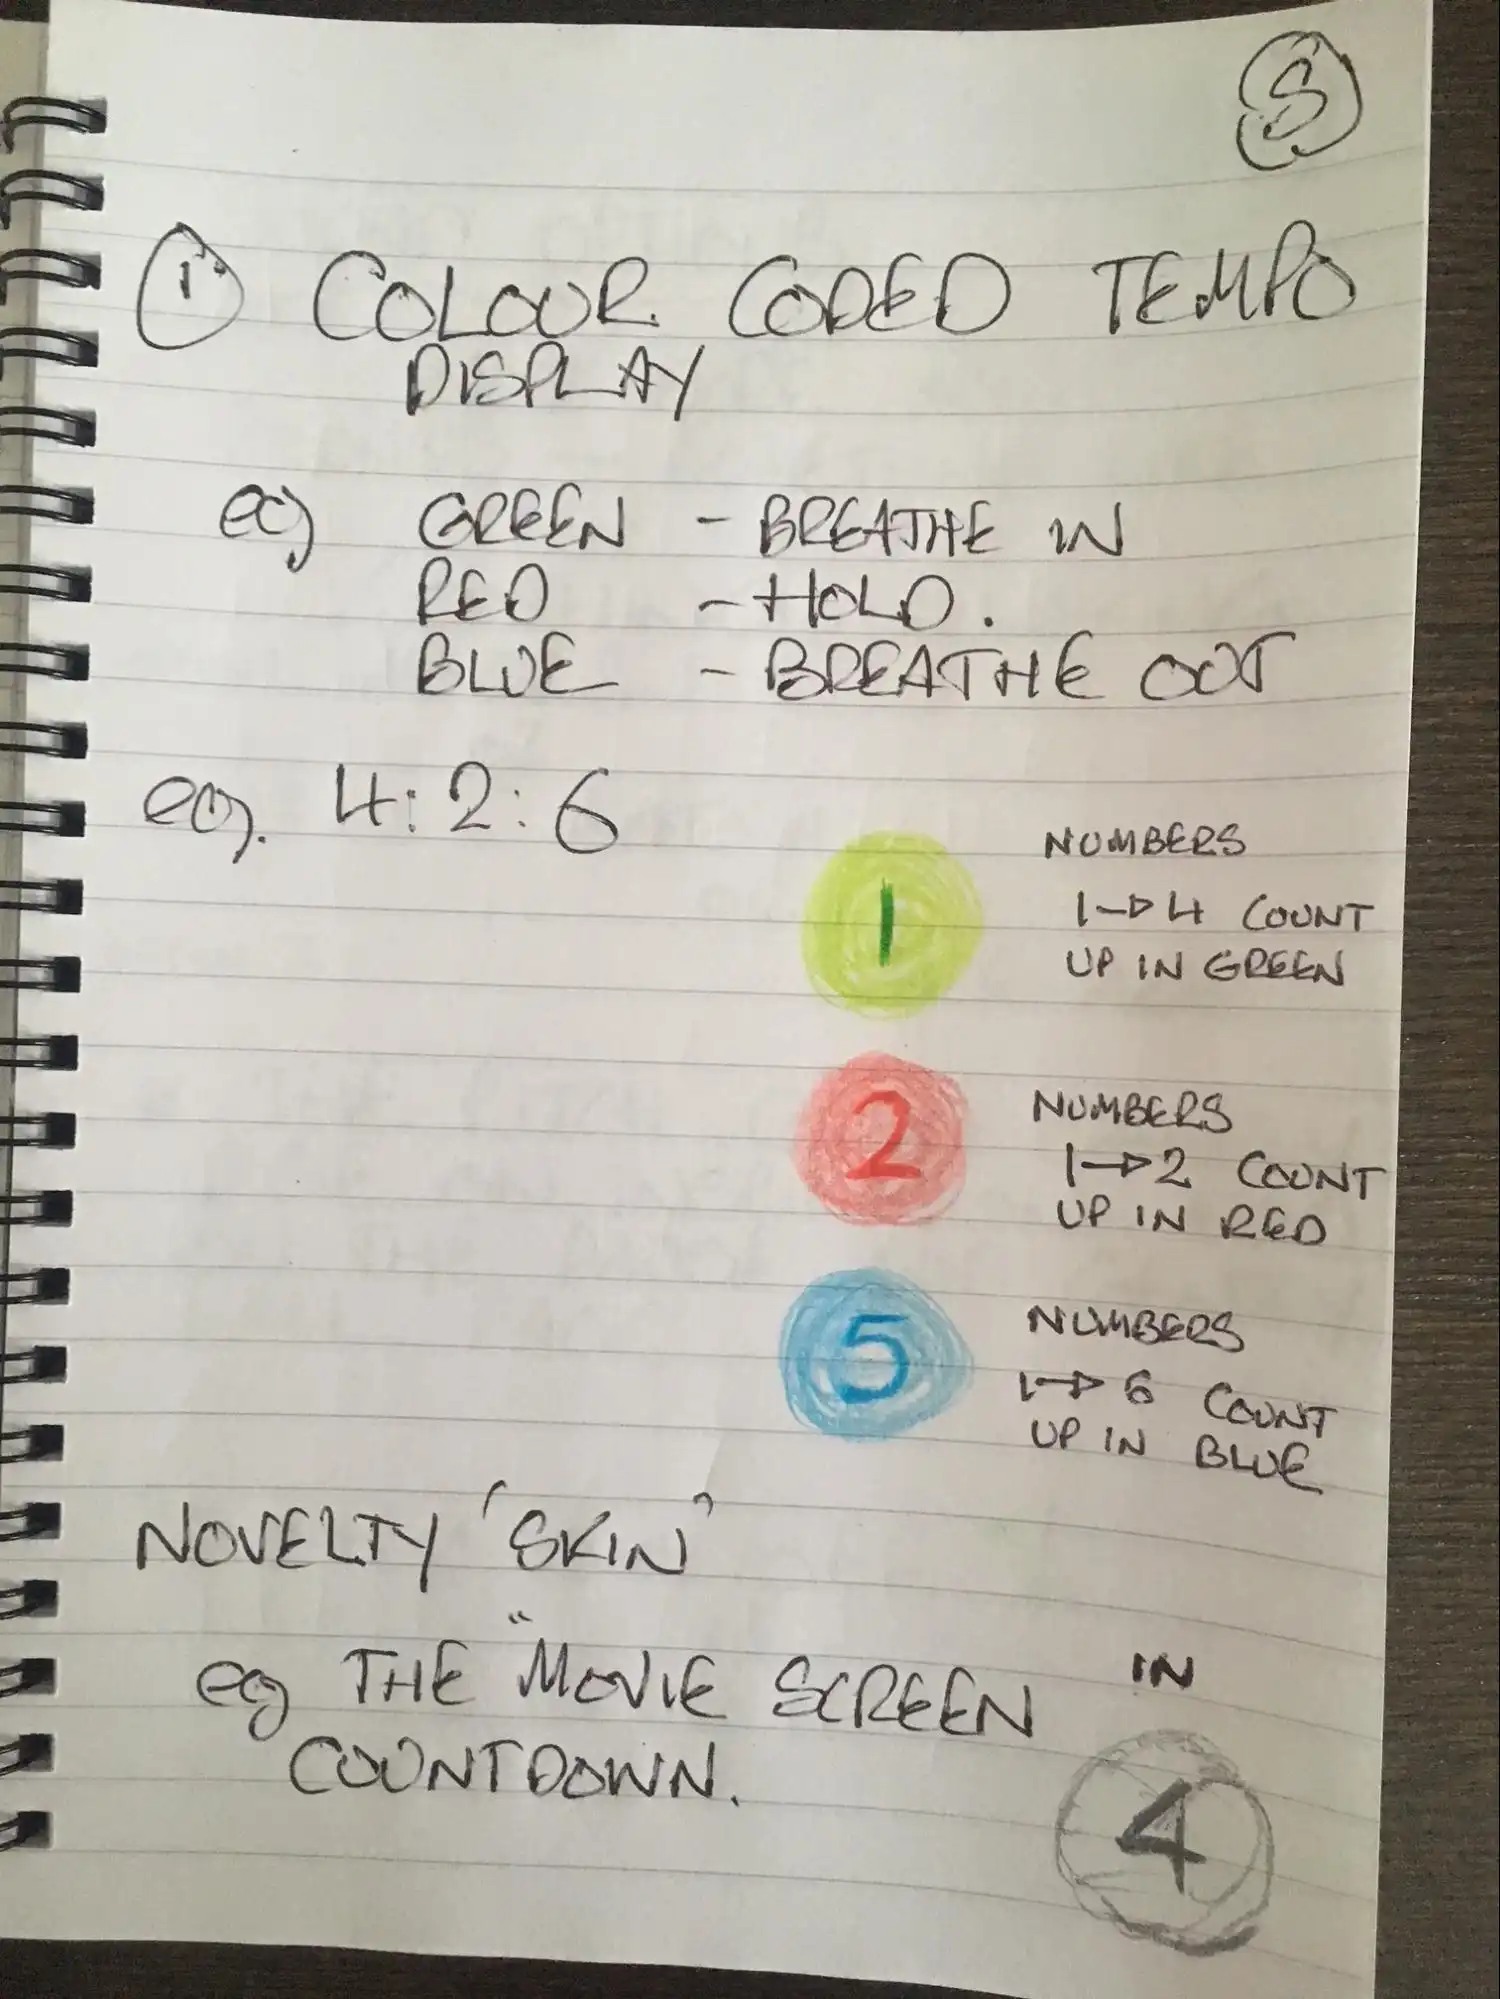 5
1. COLOUR CODED TEMPO
DISPLAY
eg GREEN - BREATHE IN
RED - HOLD.
BLUE - BREATHE OUT
eg. 4:2:6
1
NUMBERS
1→4 COUNT
UP IN GREEN
2
NUMBERS
1→2 COUNT
UP IN RED
5
NUMBERS
1→6 COUNT
UP IN BLUE
NOVELTY 'SKIN'
eg THE "MOVIE SCREEN
COUNTDOWN.
IN
4